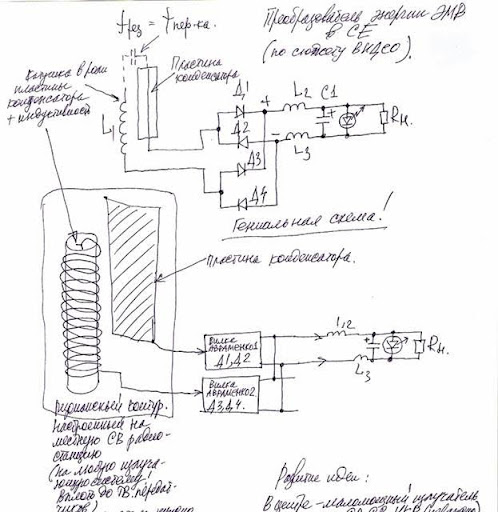 fрез = fпер-ка.
Преобразователь энергии ЭМВ
в СЕ
(по сюжету ВИДЕО).
Катушка в роли
пластины
конденсатора
+ индуктивность
Пластина
конденсатора
L1
Д1
Д2
Д3
Д4
+
-
L2
L3
C1
+
Rн.
Гениальная схема!
Пластина конденсатора.
Вилка
Авраменко1
Д1,Д2
Вилка
Авраменко2
Д3,Д4.
L2
L3
+
Rн.
контур.
настроенный на
местную СВ радио-
станцию
(на любую излуча-
ющую систему,
вплоть до ТВ. передат-
чиков)
Развитие идеи:
В центре - маломощный излучатель